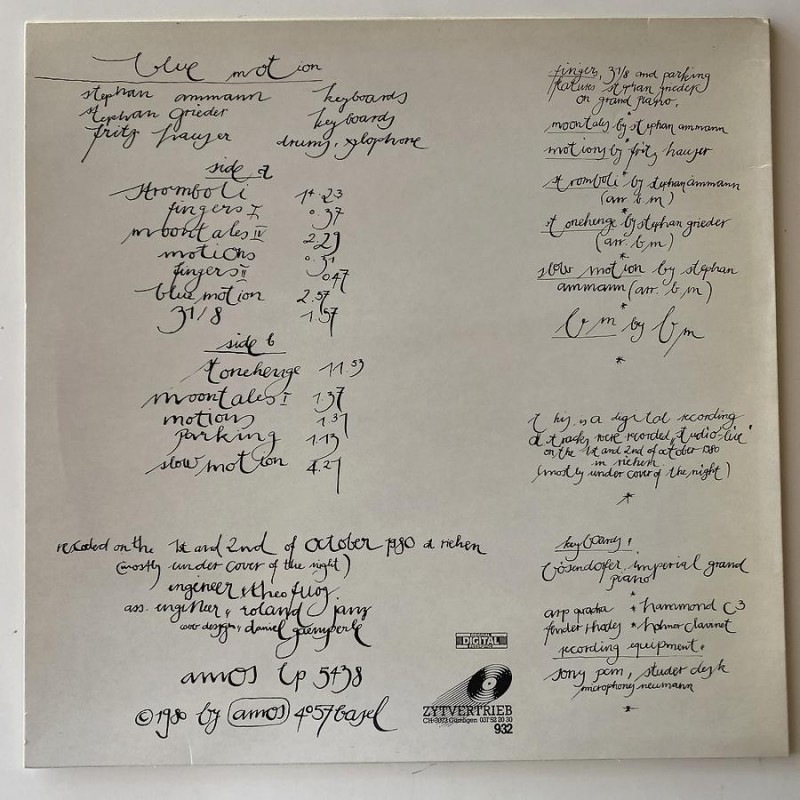 blue motion
stephan ammann keyboards
stephan grieder keyboards
fritz hauser drums, xylophone
side a
stromboli 14.23
fingers I 0.37
moontales IV 2.29
motions 0.51
fingers II 0.47
blue motion 2.57
31/8 1.57
side b
stonehenge 11.53
moontales I 1.37
motions 1.31
parking 1.13
slow motion 4.21
recorded on the 1st and 2nd of october 1980 at riehen
(mostly under cover of the night)
engineer: theo fuog
ass. engineer: roland janz
cover design: daniel gaemperle
amos lp 5438
© 1980 by amos 4057 basel
DIGITAL
ZYTVERTRIEB
CH-3073 Gümligen 031 52 20 30
932
fingers, 31/8 and parking
features stephan grieder
on grand piano.
*
moontales by stephan ammann
*
motions by fritz hauser
*
stromboli by stephan ammann
(arr. b m)
*
stonehenge by stephan grieder
(arr. b m)
*
slow motion by stephan
ammann (arr. b m)
*
b m by b m
*
this is a digital recording
all tracks were recorded "studio-live"
on the 1st and 2nd of october 1980
in riehen
(mostly under cover of the night)
*
keyboards:
bösendorfer imperial grand
piano
arp quadra * hammond C3
fender rhodes * hohner clavinet
recording equipment:
sony pcm, studer desk
microphones neumann
*